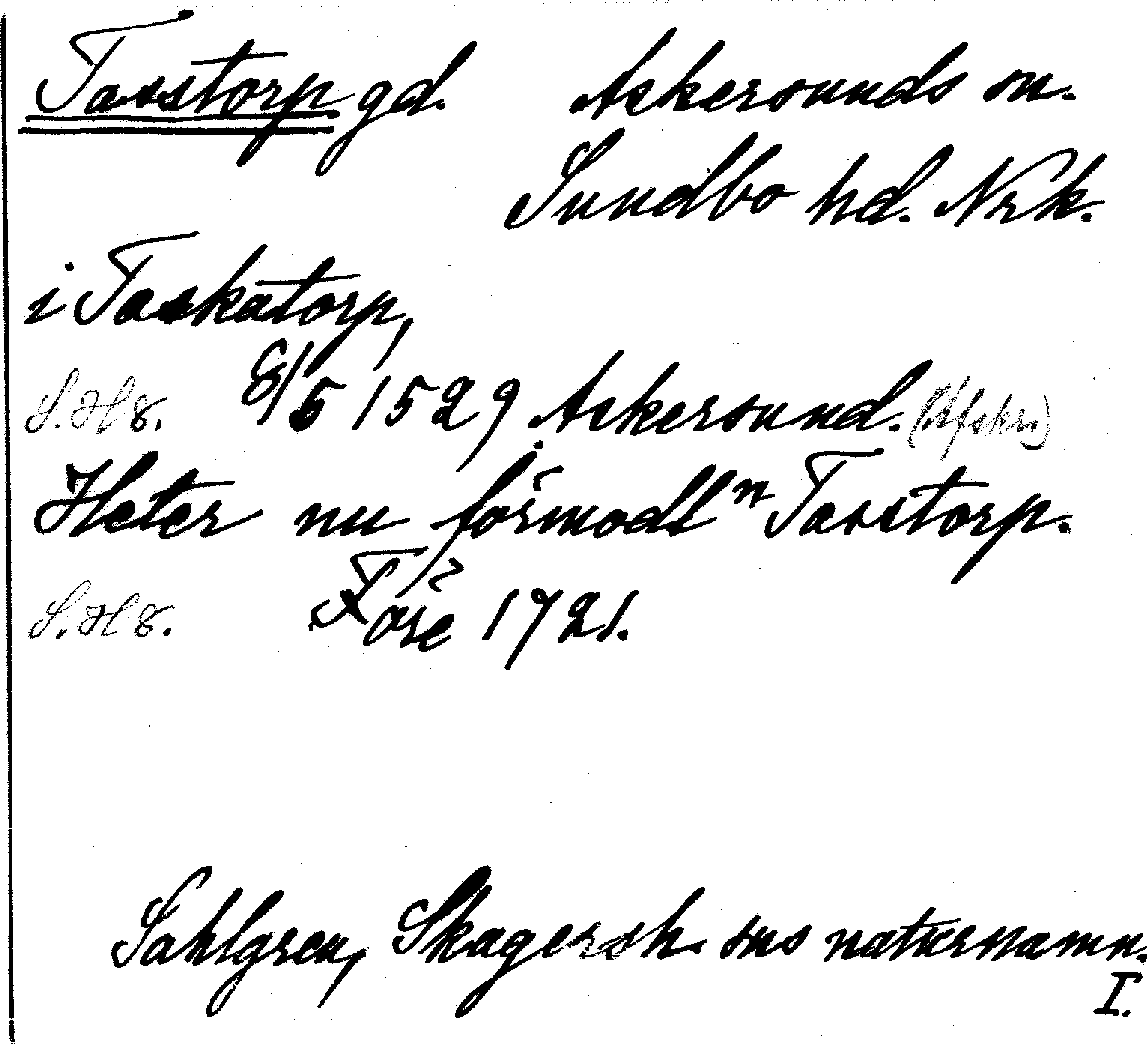 Tasstorp gd. Askersunds sn.
Sundbo hd. Nrk.
i Taskatorp,
S.H8. 8/5 1529 Askersund. (Afskr.)
Heter nu förmodl^n Tasstorp.
S.H8. 1721.
Sahlgren, Skagersh. sns naturnamn.
I.